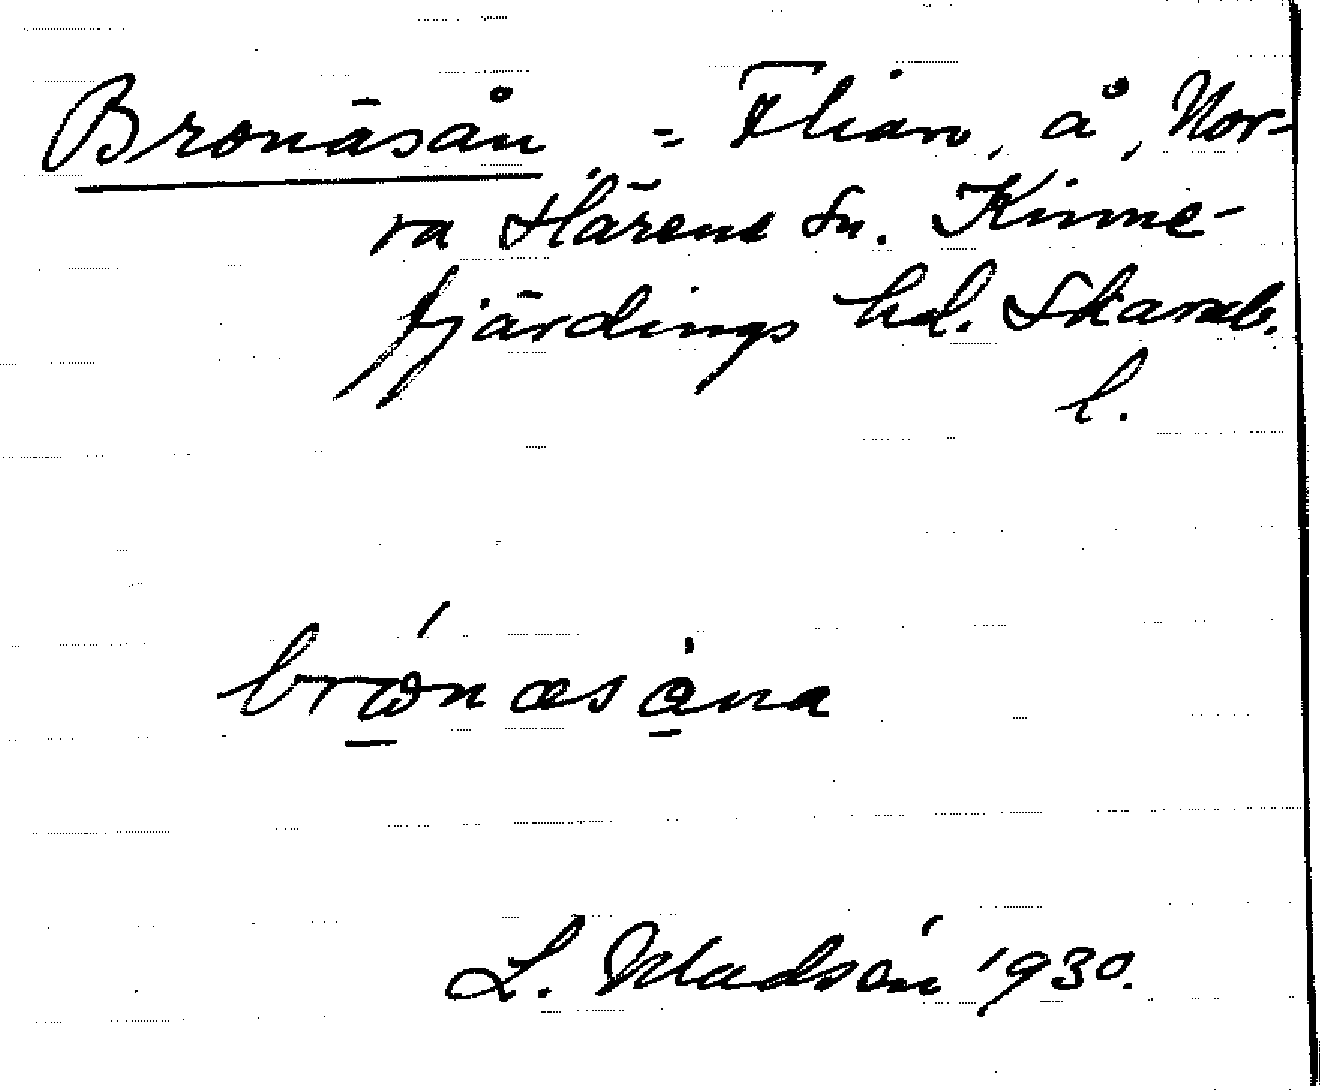 Bronäsån = Flian, å, Nor-
ra Härene sn. Kinne-
fjärdings hd. Skarab.
l.
brǿnæsåna
L. Madsén 1930.